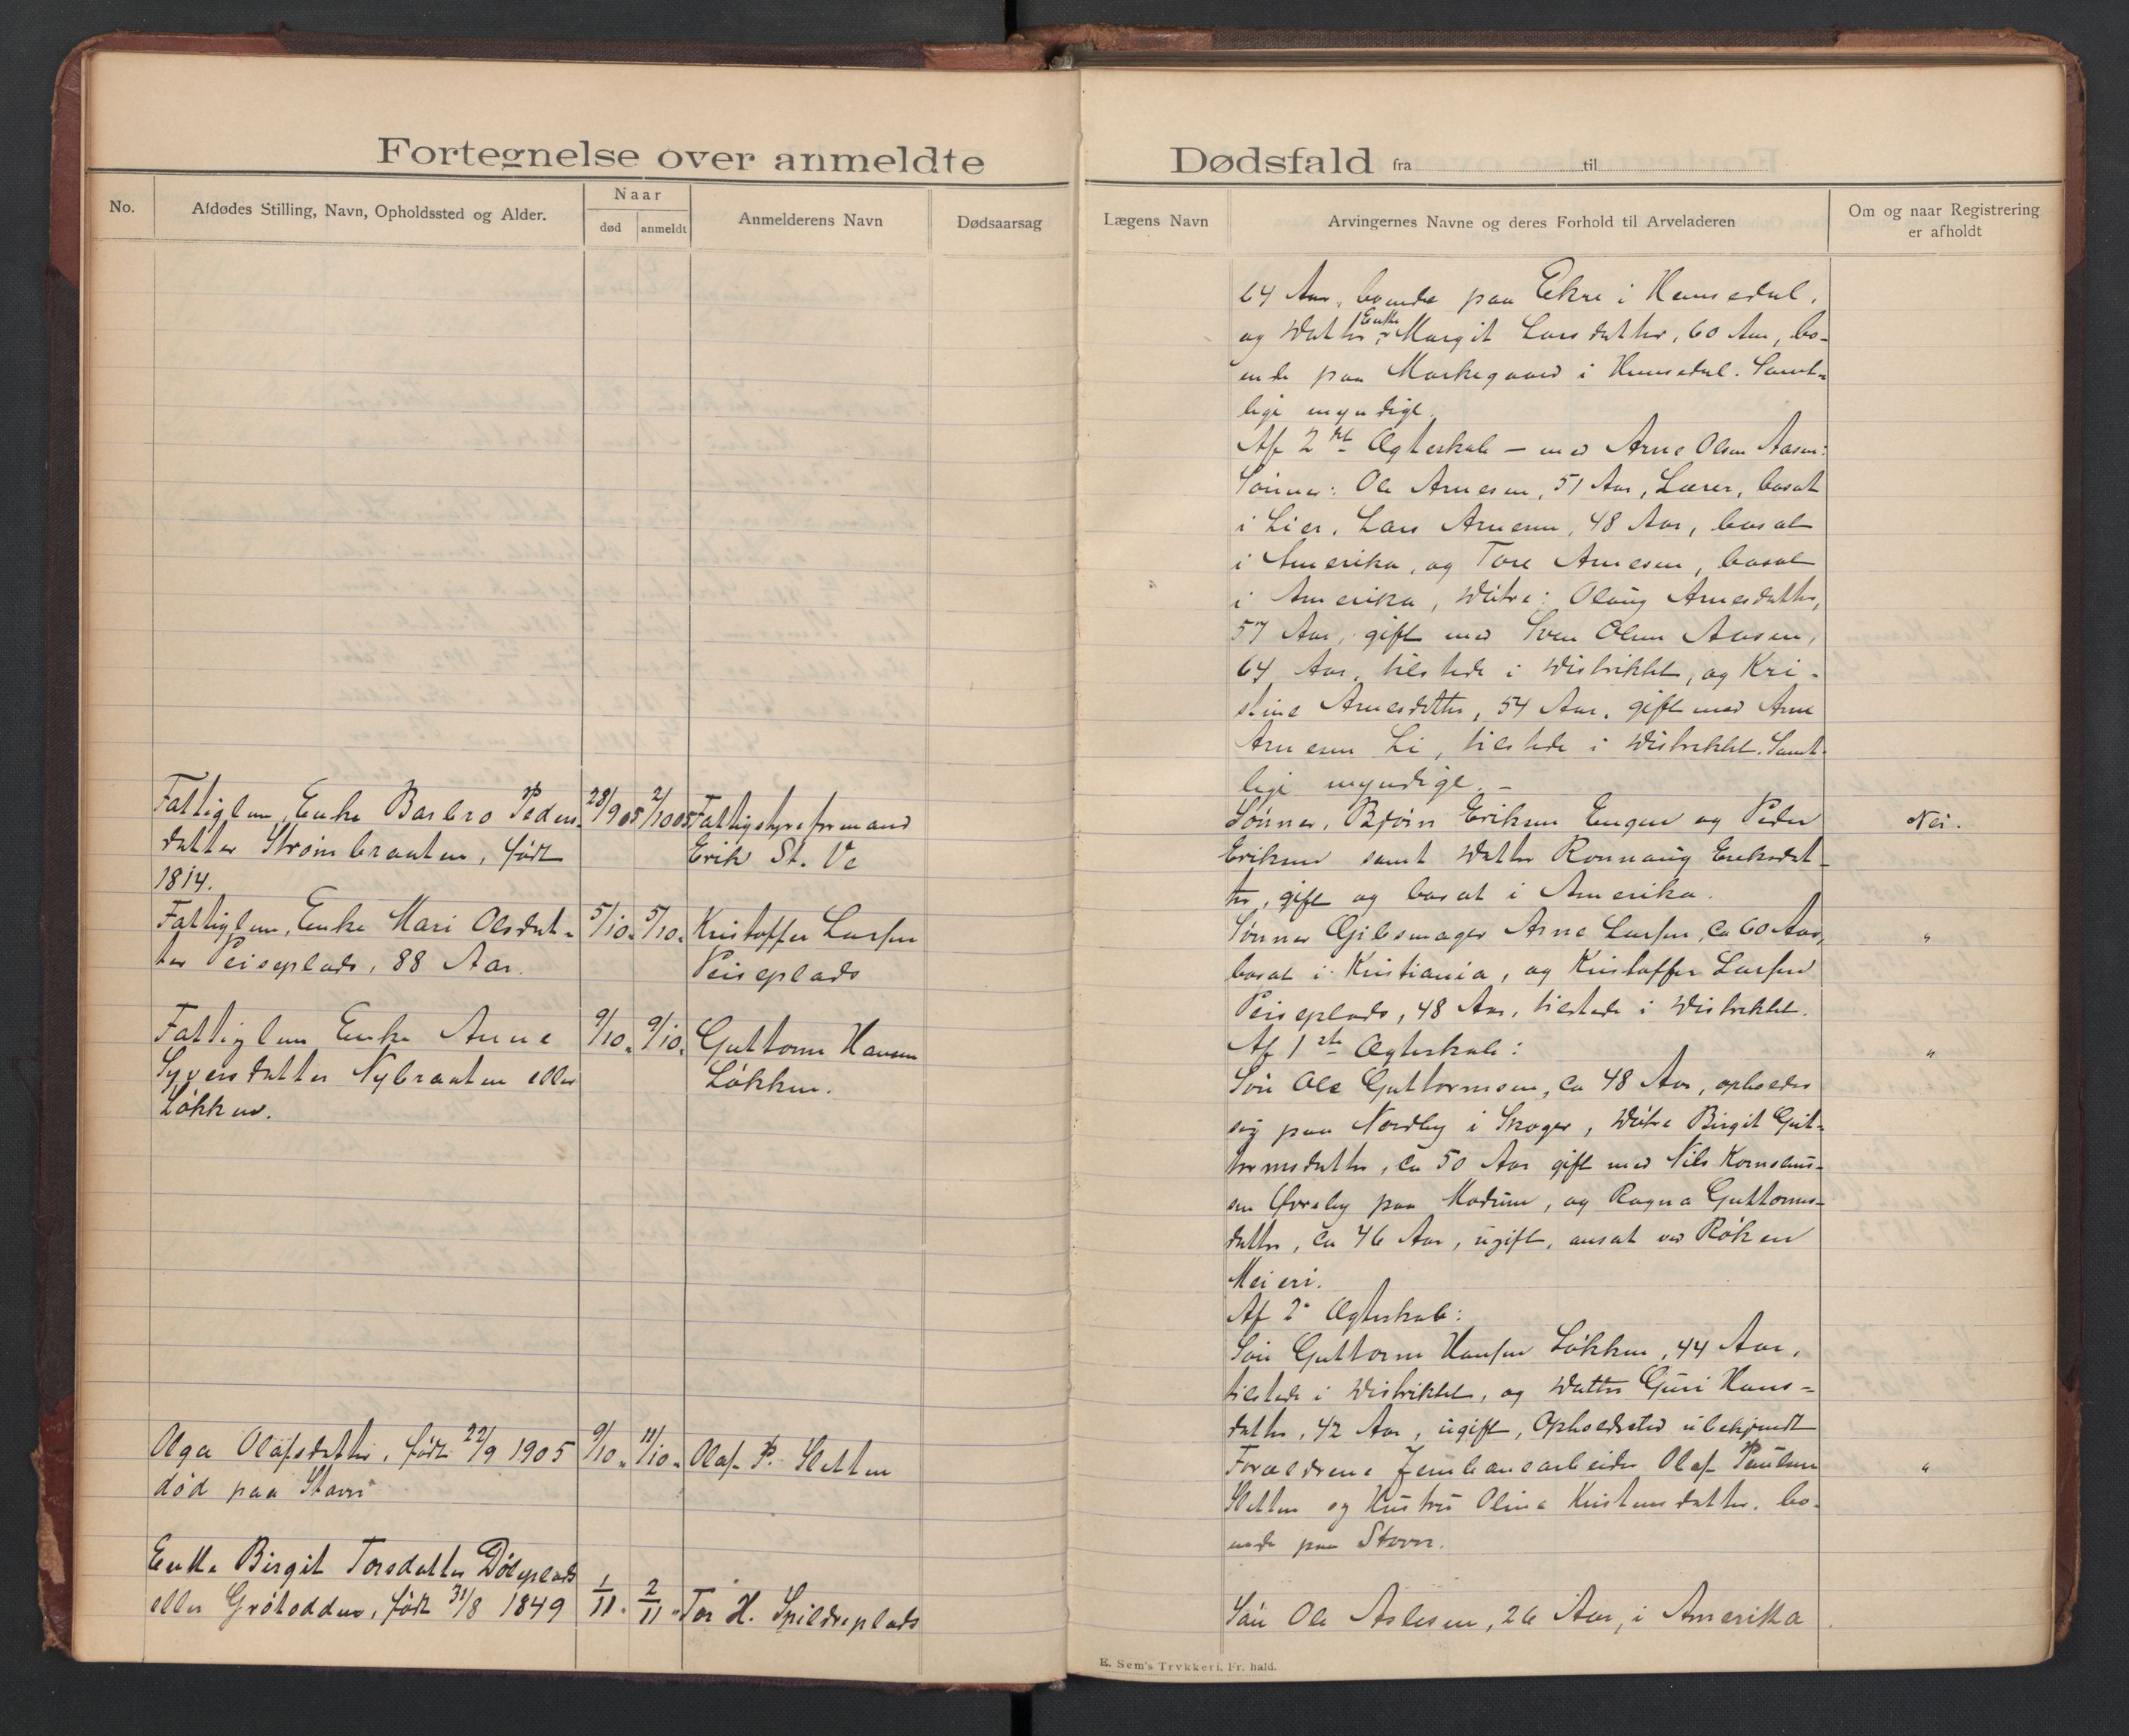 Fortegnelse over anmeldte
No.
Afdødes Stilling, Navn, Opholdssted og Alder.
Naar
død
anmeldt
Anmelderens Navn
Dødsaarsag
Fattiglem, Enke Barbro Peders-
datter Strømbraaten, født
1814.
28/9 05
2/10 05
Fattigstyreformand
Erik St. Ve
Fattiglem, Enke Mari Olsdat-
ter Peiseplads, 88 Aar.
5/10 "
5/10 "
Kristoffer Larsen
Peiseplads
Fattiglem Enke Anne
Syversdatter Nybraaten eller
Løkken.
9/10 "
9/10 "
Guttorm Hansen
Løkken.
Olga Olafsdatter, født 22/9 1905
død paa Stavn
9/10 "
11/10 "
Olaf P. Sletten
Enke Birgit Torsdatter Døleplads
eller Grøtodden, født 31/8 1849
1/11 "
2/11 "
Tor H. Spildreplads
Dødsfald fra til
Lægens Navn
Arvingernes Navne og deres Forhold til Arveladeren
Om og naar Registrering
er afholdt
64 Aar, boende paa Ekre i Hemsedal,
og Datter, Enke Margit Larsdatter, 60 Aar, bo-
ende paa Markegaard i Hemsedal. Samt-
lige myndige.
Af 2det Ægteskab – med Arne Olsen Aasen:
Sønner: Ole Arnesen, 51 Aar, Lærer, bosat
i Lier, Lars Arnesen, 48 Aar, bosat
i Amerika, og Tore Arnesen, bosat
i Amerika, Døtre: Olaug Arnesdatter,
57 Aar, gift med Sven Olsen Aasen,
64 Aar, tilstede i Distriktet, og Kri-
stine Arnesdatter, 54 Aar, gift med Arne
Arnesen Li, tilstede i Distriktet. Samt-
lige myndige. –
Sønner, Bjørn Eriksen Engen og Peder
Eriksen samt Datter Rønnaug Eriksdat-
ter, gift og bosat i Amerika.
Nei.
Sønner Gibsmager Arne Larsen, ca 60 Aar,
bosat i Kristiania, og Kristoffer Larsen
Peiseplads, 48 Aar, tilstede i Distriktet.
"
Af 1ste Ægteskab:
Søn Ole Guttormsen, ca 48 Aar, opholder
sig paa Nordby i Skoger, Døtre Birgit Gut-
tormsdatter, ca 50 Aar gift med Nils
paa Modum, og Ragna Guttorms-
datter, ca 46 Aar, ugift, ansat ved Røken
Meieri.
"
Af 2" Ægteskab:
Søn Guttorm Hansen Løkken, 44 Aar,
tilstede i Distriktet, og Datter Guri Hans-
datter, 42 Aar, ugift, Opholdssted ubekjendt
Forældrene Jernbanearbeider Olaf Paulsen
Sletten og Hustru Oline Kristensdatter, bo-
ende paa Stavn.
"
Søn Ole Aslesen, 26 Aar, i Amerika
E. Sem's Trykkeri, Fr. hald.